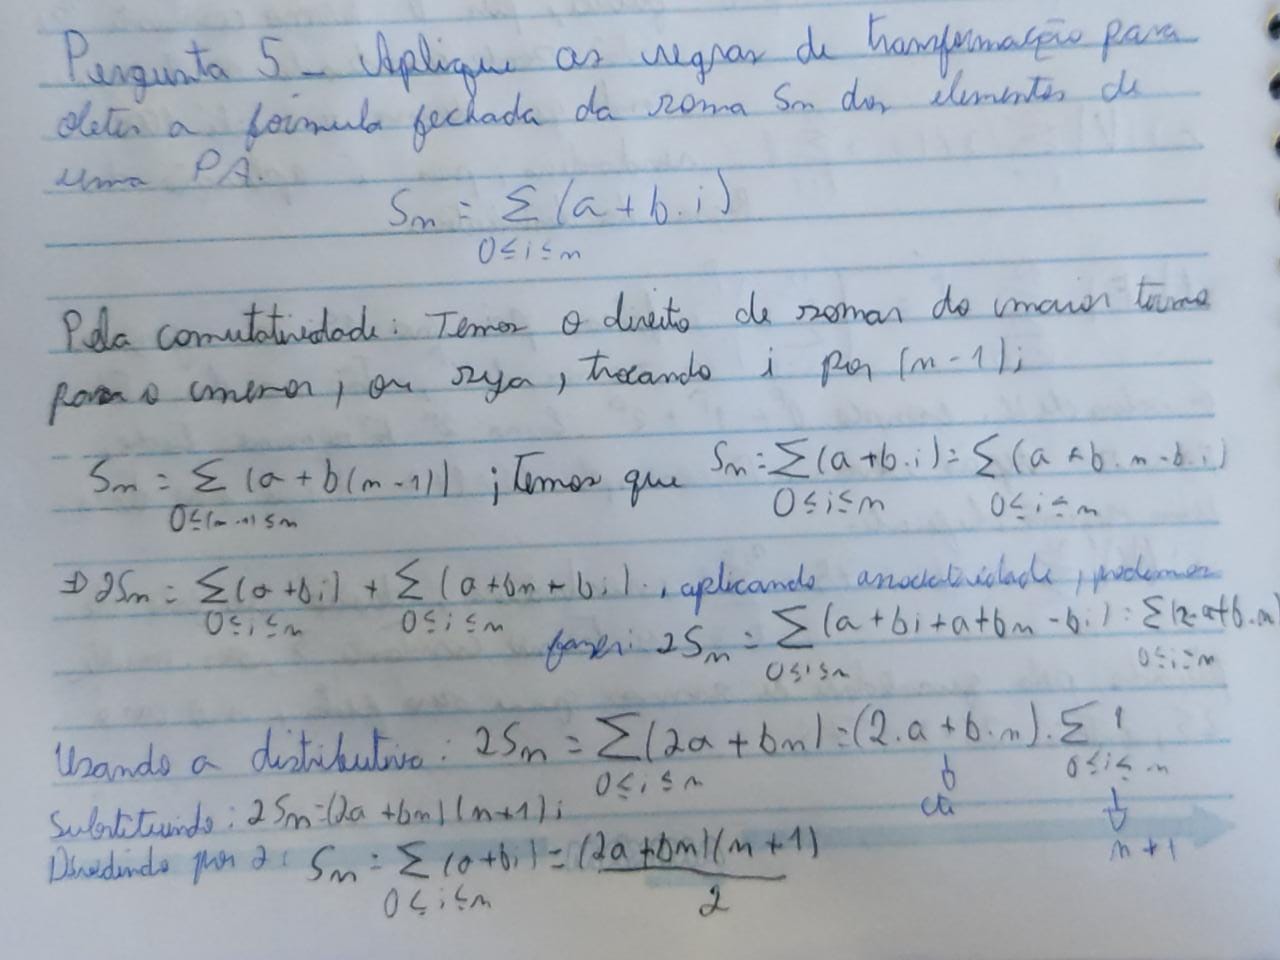 Pergunta 5 - Aplique as regras de transformação para
obter a fórmula fechada da soma Sn dos elementos de
uma PA.
Sn = Σ (a + b.i)
0≤i≤n
Pela comutatividade: Temos o direito de somar do maior termo
para o menor, ou seja, trocando i por (n-1);
Sn = Σ (a + b(n-1)) ; Temos que Sn = Σ (a+b.i) = Σ (a+b.n-b.i)
0≤(n-1)≤n 0≤i≤n 0≤i≤n
⇒ 2Sn = Σ (a+bi) + Σ (a+bn-bi). , aplicando associatividade, podemos
0≤i≤n 0≤i≤n
fazer: 2Sn = Σ (a+bi+a+bn-bi) = Σ (2.a+b.n)
0≤i≤n 0≤i≤n
Usando a distributiva: 2Sn = Σ (2a+bn) = (2.a+b.n). Σ 1
0≤i≤n 0≤i≤n
cte n+1
Substituindo: 2Sn = (2a+bn)(n+1);
Dividindo por 2: Sn = Σ (a+bi) = (2a+bn)(n+1)
0≤i≤n 2